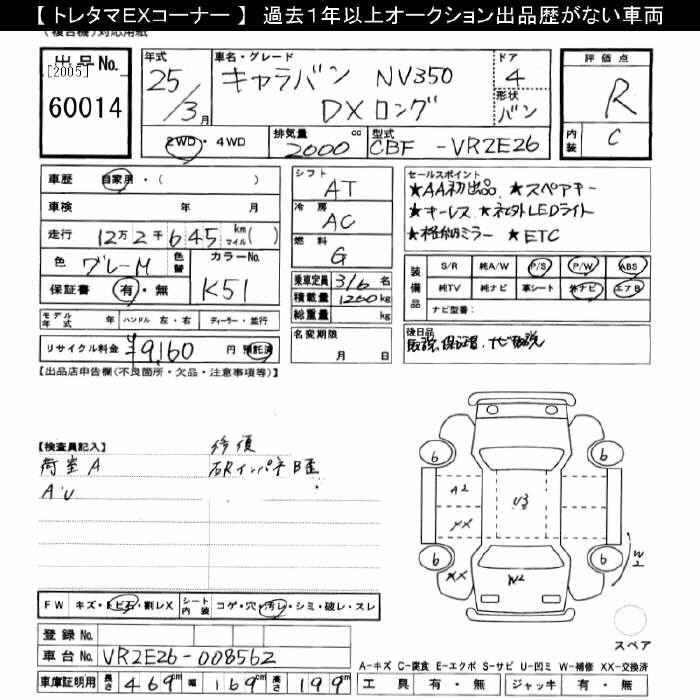 【トレタマEXコーナー】 過去1年以上オークション出品歴がない車両
(複合機)対応用紙
出品No. [2005] 60014
年式 25/3月
車名・グレード キャラバン NV350 DXロング
ドア 4
形状 バン
評価点 R
内装 C
2WD・4WD
排気量 2000 cc
型式 CBF-VR2E26
車歴 自家用・( )
車検 年 月
走行 12万2千645 km マイル( )
色 グレーM 色替 カラーNo. K51
保証書 有・無
モデル年式 年 ハンドル 左・右 ディーラー・並行
リサイクル料金 ¥9,160 円 預託済
シフト AT
冷房 AC
燃料 G
乗車定員 3/6 名
積載量 1200 kg
総重量 kg
名変期限 月 日
セールスポイント
★AA初出品 ★スペアキー
★キーレス ★社外LEDライト
★格納ミラー ★ETC
装備品 S/R 純A/W P/S P/W ABS
純TV 純ナビ 革シート 外ナビ エアB
ナビ型番:
後日品
取説、保証書、ナビ取説
【出品店申告欄(不良箇所・欠品・注意事項等)】
【検査員記入】
荷室A 修復
AU 右Rインパネ B歪
6 6
A2 U3
XX
6 6
XX W2 W2
スペア
FW キズ・トビ石・割レX シート内装 コゲ・穴・汚レ・シミ・破レ・スレ
登録No.
車台No. VR2E26-008562
車庫証明用 長さ 469 cm 幅 169 cm 高さ 199 cm
A-キズ C-腐食 E-エクボ S-サビ U-凹ミ W-補修 XX-交換済
工具 有・無 ジャッキ 有・無